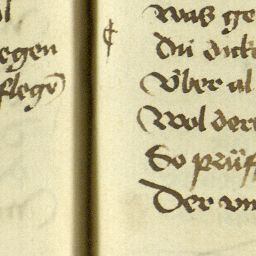 egen
flegē
was ge
Du dick
Vber al
Wol der
So prüf
Der vn